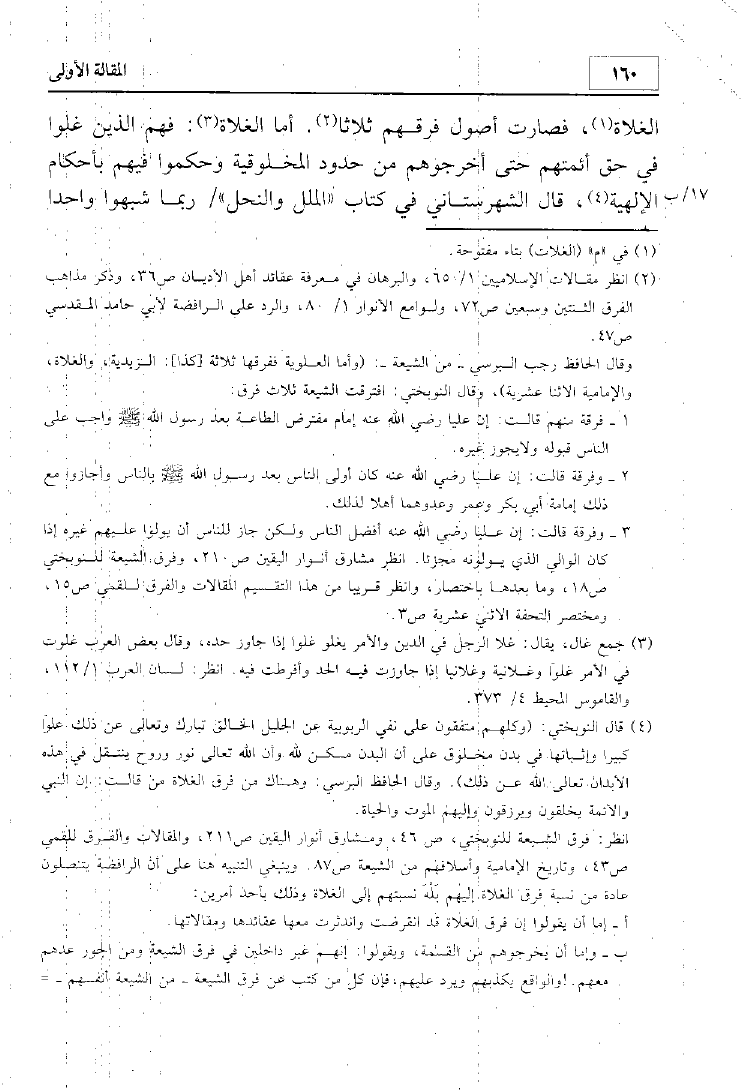 ١٦٠
المقالة الأولى
الغلاة(١)، فصارت أصول فرقهم ثلاثا(٢). أما الغلاة(٣): فهم الذين غلوا
في حق أئمتهم حتى أخرجوهم من حدود المخلوقية وحكموا فيهم بأحكام
الإلهية(٤)، قال الشهرستاني في كتاب «الملل والنحل»/ ربما شبهوا واحدا
١٧/ب
(١) في «م» (الغلات) بتاء مفتوحة.
(٢) انظر مقالات الإسلاميين ١/ ٦٥، والبرهان في معرفة عقائد أهل الأديان ص٣٦، وذكر مذاهب
الفرق الثنتين وسبعين ص٧٢، ولوامع الأنوار ١/ ٨٠، والرد على الرافضة لأبي حامد المقدسي
ص٤٧.
وقال الحافظ رجب البرسي ـ من الشيعة ـ: (وأما العلوية ففرقها ثلاثة [كذا]: الزيدية، والغلاة،
والإمامية الاثنا عشرية)، وقال النوبختي: افترقت الشيعة ثلاث فرق:
١ ـ فرقة منهم قالت: إن عليا رضي الله عنه إمام مفترض الطاعة بعد رسول الله ﷺ واجب على
الناس قبوله ولايجوز غيره.
٢ ـ وفرقة قالت: إن عليا رضي الله عنه كان أولى الناس بعد رسول الله ﷺ بالناس وأجازوا مع
ذلك إمامة أبي بكر وعمر وعدوهما أهلا لذلك.
٣ ـ وفرقة قالت: إن عليا رضي الله عنه أفضل الناس ولكن جاز للناس أن يولوا عليهم غيره إذا
كان الوالي الذي يولونه مجزئا. انظر مشارق أنوار اليقين ص٢١٠، وفرق الشيعة للنوبختي
ص١٨، وما بعدها باختصار، وانظر قريبا من هذا التقسيم المقالات والفرق للقمي ص١٥،
ومختصر التحفة الاثني عشرية ص٣.
(٣) جمع غال، يقال: غلا الرجل في الدين والأمر يغلو غلوا إذا جاوز حده، وقال بعض العرب غلوت
في الأمر غلوا وغلانية وغلانيا إذا جاوزت فيه الحد وأفرطت فيه. انظر: لسان العرب ١/ ١١٢،
والقاموس المحيط ٤/ ٣٧٣.
(٤) قال النوبختي: (وكلهم متفقون على نفي الربوبية عن الجليل الخالق تبارك وتعالى عن ذلك علوا
كبيرا وإثباتها في بدن مخلوق على أن البدن مسكن لله وأن الله تعالى نور وروح ينتقل في هذه
الأبدان تعالى الله عن ذلك). وقال الحافظ البرسي: وهناك من فرق الغلاة من قالت: إن النبي
والائمة يخلقون ويرزقون وإليهم الموت والحياة.
انظر: فرق الشيعة للنوبختي، ص ٤٦، ومشارق أنوار اليقين ص٢١١، والمقالات والفرق للقمي
ص٤٣، وتاريخ الإمامية وأسلافهم من الشيعة ص٨٧. وينبغي التنبيه هنا على أن الرافضة يتنصلون
عادة من نسبة فرق الغلاة إليهم بَلْهَ نسبتهم إلى الغلاة وذلك بأحد أمرين:
أ ـ إما أن يقولوا إن فرق الغلاة قد انقرضت واندثرت معها عقائدها ومقالاتها.
ب ـ وإما أن يخرجوهم من القسمة، ويقولوا: إنهم غير داخلين في فرق الشيعة ومن الجور عدهم
معهم. والواقع يكذبهم ويرد عليهم، فإن كل من كتب عن فرق الشيعة ـ من الشيعة أنفسهم ـ =